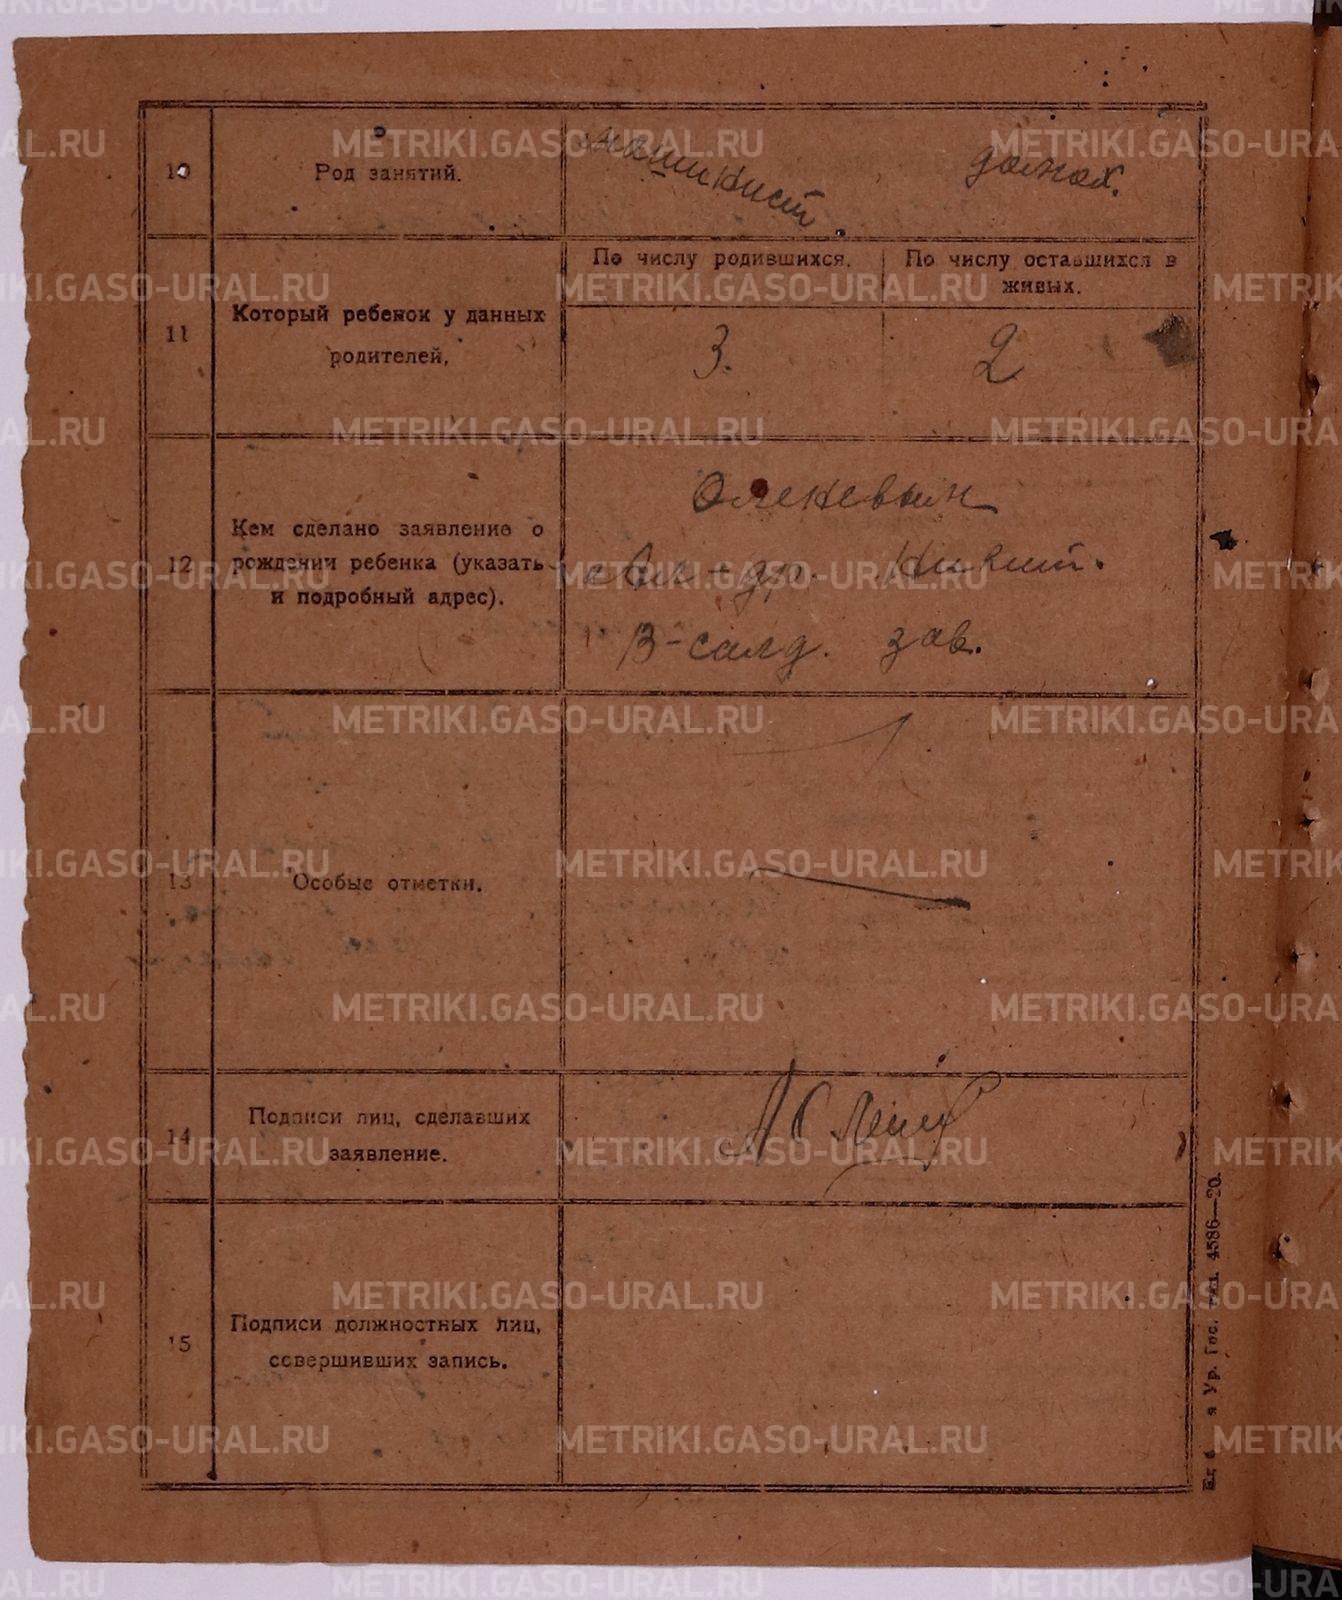 10
Род занятий.
машинист
домох.
11
Который ребенок у данных
родителей.
По числу родившихся.
По числу оставшихся в
живых.
3.
2
12
Кем сделано заявление о
рождении ребенка (указать
и подробный адрес).
Ал-др. Никит.
В-салд. зав.
13
Особые отметки.
14
Подписи лиц, сделавших
заявление.
15
Подписи должностных лиц,
совершивших запись.
я Ур. Гос. 4586—20.
METRIKI.GASO-URAL.RU